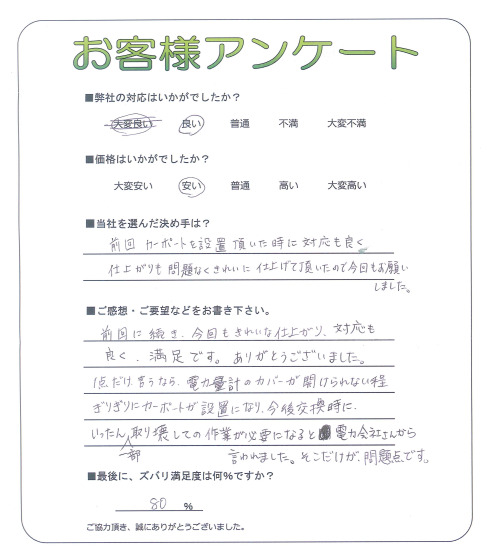 お客様アンケート
■弊社の対応はいかがでしたか？
大変良い 良い 普通 不満 大変不満
■価格はいかがでしたか？
大変安い 安い 普通 高い 大変高い
■当社を選んだ決め手は？
前回 カーポートを設置頂いた時に対応も良く
仕上がりも問題なくきれいに仕上げて頂いたので今回もお願い
しました。
■ご感想・ご要望などをお書き下さい。
前回に続き、今回もきれいな仕上がり、対応も
良く、満足です。ありがとうございました。
1点だけ言うなら、電力量計のカバーが開けられない程
ぎりぎりにカーポートが設置になり、今後交換時に、
いったん一部取り壊しての作業が必要になると電力会社さんから
言われました。そこだけが、問題点です。
■最後に、ズバリ満足度は何％ですか？
80 %
ご協力頂き、誠にありがとうございました。